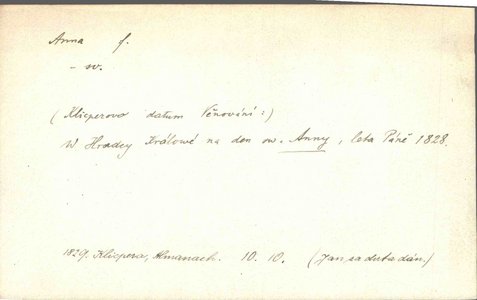 Anna f.
- sv.
(Klicperovo datum Věnování:)
W Hradcy Králowé na den sw. Anny, léta Páně 1828.
1829. Klicpera, Almanach. 10. 10. (Jan za dukátem)